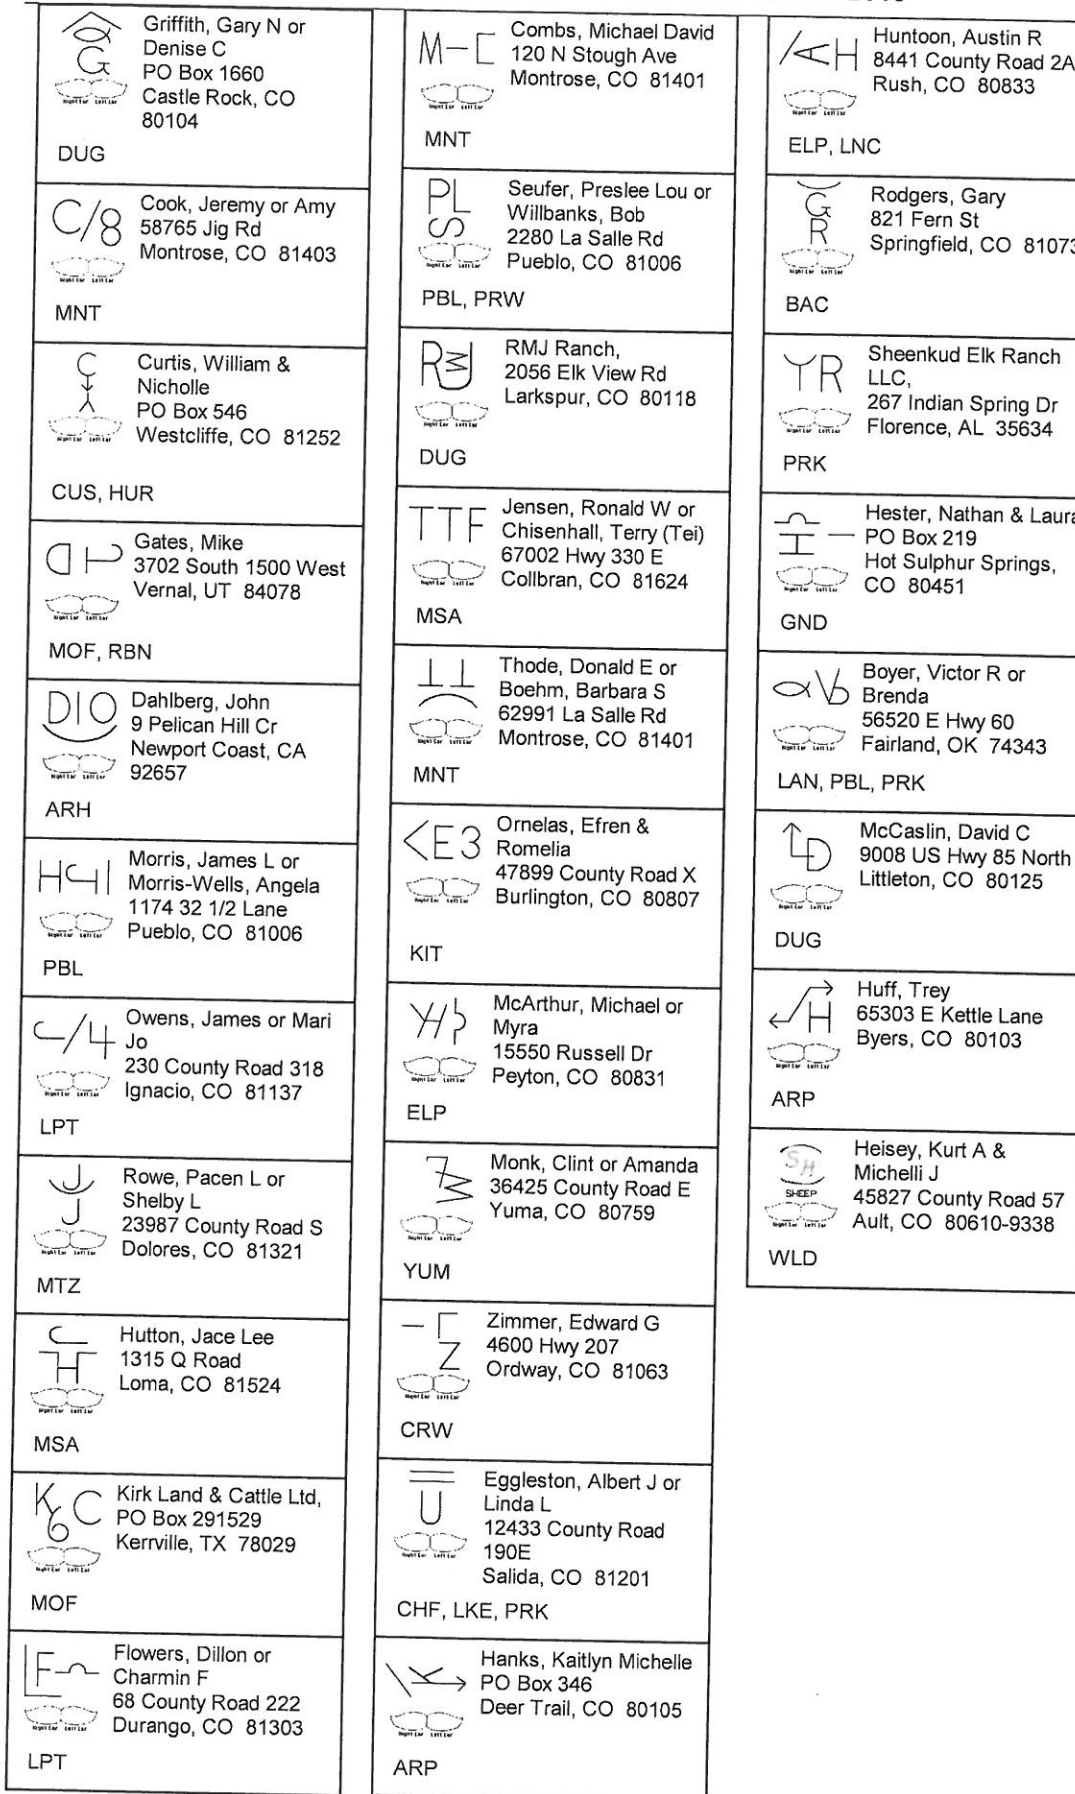 Griffith, Gary N or
Denise C
PO Box 1660
Castle Rock, CO
80104
DUG
C/8
Cook, Jeremy or Amy
58765 Jig Rd
Montrose, CO 81403
MNT
Curtis, William &
Nicholle
PO Box 546
Westcliffe, CO 81252
CUS, HUR
Gates, Mike
3702 South 1500 West
Vernal, UT 84078
MOF, RBN
DIO
Dahlberg, John
9 Pelican Hill Cr
Newport Coast, CA
92657
ARH
Morris, James L or
Morris-Wells, Angela
1174 32 1/2 Lane
Pueblo, CO 81006
PBL
Owens, James or Mari
Jo
230 County Road 318
Ignacio, CO 81137
LPT
Rowe, Pacen L or
Shelby L
23987 County Road S
Dolores, CO 81321
MTZ
Hutton, Jace Lee
1315 Q Road
Loma, CO 81524
MSA
K6C
Kirk Land & Cattle Ltd,
PO Box 291529
Kerrville, TX 78029
MOF
Flowers, Dillon or
Charmin F
68 County Road 222
Durango, CO 81303
LPT
M-C
Combs, Michael David
120 N Stough Ave
Montrose, CO 81401
MNT
PL
S
Seufer, Preslee Lou or
Willbanks, Bob
2280 La Salle Rd
Pueblo, CO 81006
PBL, PRW
RMJ Ranch,
2056 Elk View Rd
Larkspur, CO 80118
DUG
TTF
Jensen, Ronald W or
Chisenhall, Terry (Tei)
67002 Hwy 330 E
Collbran, CO 81624
MSA
Thode, Donald E or
Boehm, Barbara S
62991 La Salle Rd
Montrose, CO 81401
MNT
<E3
Ornelas, Efren &
Romelia
47899 County Road X
Burlington, CO 80807
KIT
McArthur, Michael or
Myra
15550 Russell Dr
Peyton, CO 80831
ELP
Monk, Clint or Amanda
36425 County Road E
Yuma, CO 80759
YUM
Zimmer, Edward G
4600 Hwy 207
Ordway, CO 81063
CRW
Eggleston, Albert J or
Linda L
12433 County Road
190E
Salida, CO 81201
CHF, LKE, PRK
Hanks, Kaitlyn Michelle
PO Box 346
Deer Trail, CO 80105
ARP
Huntoon, Austin R
8441 County Road 2A
Rush, CO 80833
ELP, LNC
G
R
Rodgers, Gary
821 Fern St
Springfield, CO 81073
BAC
YR
Sheenkud Elk Ranch
LLC,
267 Indian Spring Dr
Florence, AL 35634
PRK
Hester, Nathan & Laura
PO Box 219
Hot Sulphur Springs,
CO 80451
GND
Boyer, Victor R or
Brenda
56520 E Hwy 60
Fairland, OK 74343
LAN, PBL, PRK
McCaslin, David C
9008 US Hwy 85 North
Littleton, CO 80125
DUG
Huff, Trey
65303 E Kettle Lane
Byers, CO 80103
ARP
SH
SHEEP
Heisey, Kurt A &
Michelli J
45827 County Road 57
Ault, CO 80610-9338
WLD